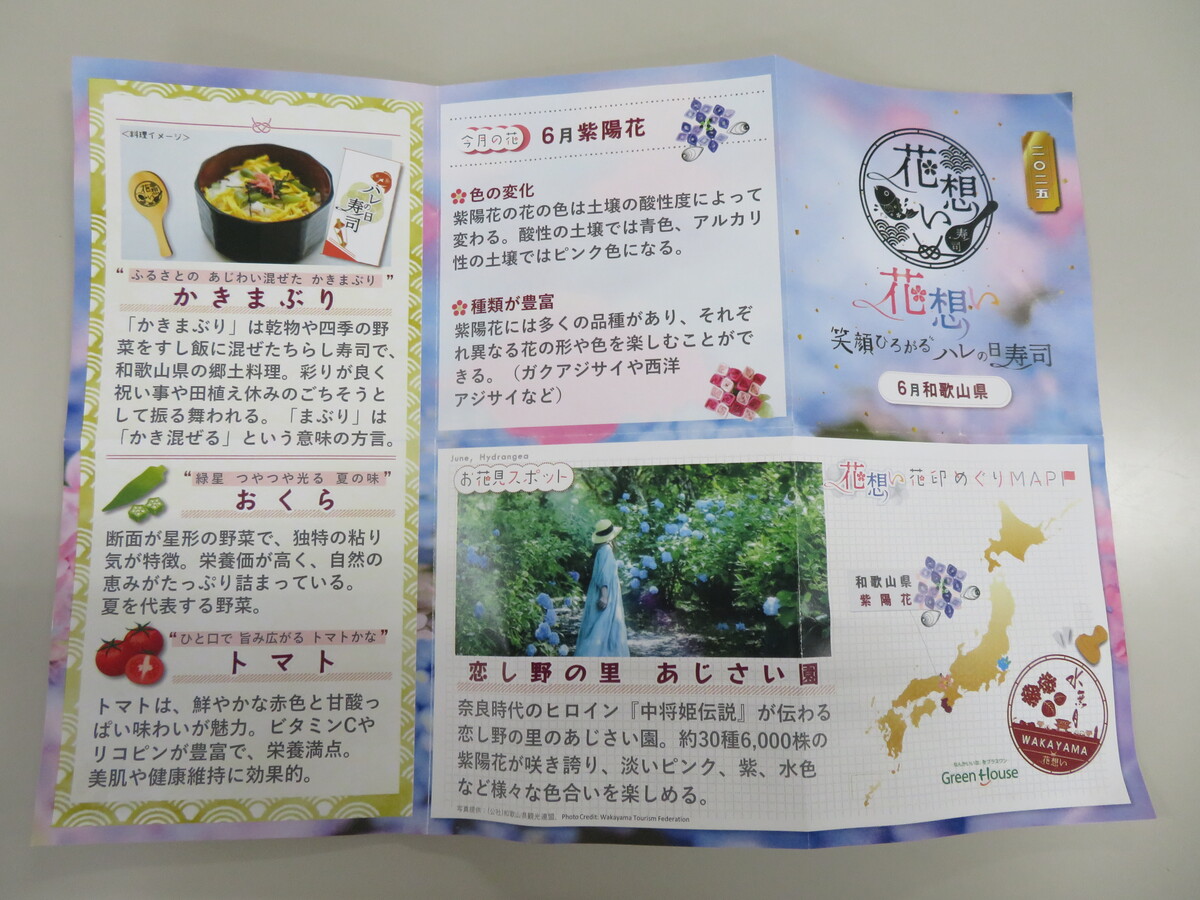 <料理イメージ>
花想い
ハレの日
寿司
“ふるさとの あじわい混ぜた かきまぶり”
かきまぶり
「かきまぶり」は乾物や四季の野
菜をすし飯に混ぜたちらし寿司で、
和歌山県の郷土料理。彩りが良く
祝い事や田植え休みのごちそうと
して振る舞われる。「まぶり」は
「かき混ぜる」という意味の方言。
“緑星 つやつや光る 夏の味”
おくら
断面が星形の野菜で、独特の粘り
気が特徴。栄養価が高く、自然の
恵みがたっぷり詰まっている。
夏を代表する野菜。
“ひと口で 旨み広がる トマトかな”
トマト
トマトは、鮮やかな赤色と甘酸っ
ぱい味わいが魅力。ビタミンCや
リコピンが豊富で、栄養満点。
美肌や健康維持に効果的。
今月の花 6月紫陽花
色の変化
紫陽花の花の色は土壌の酸性度によって
変わる。酸性の土壌では青色、アルカリ
性の土壌ではピンク色になる。
種類が豊富
紫陽花には多くの品種があり、それぞ
れ異なる花の形や色を楽しむことがで
きる。（ガクアジサイや西洋
アジサイなど）
二〇二五
花想い
寿司
花想い
笑顔ひろがる ハレの日寿司
6月和歌山県
June, Hydrangea
お花見スポット
恋し野の里 あじさい園
奈良時代のヒロイン『中将姫伝説』が伝わる
恋し野の里のあじさい園。約30種6,000株の
紫陽花が咲き誇り、淡いピンク、紫、水色
など様々な色合いを楽しめる。
写真提供：（公社）和歌山県観光連盟、Photo Credit: Wakayama Tourism Federation
花想い花印めぐりMAP
和歌山県
紫陽花
水無月
WAKAYAMA
花想い
Green House